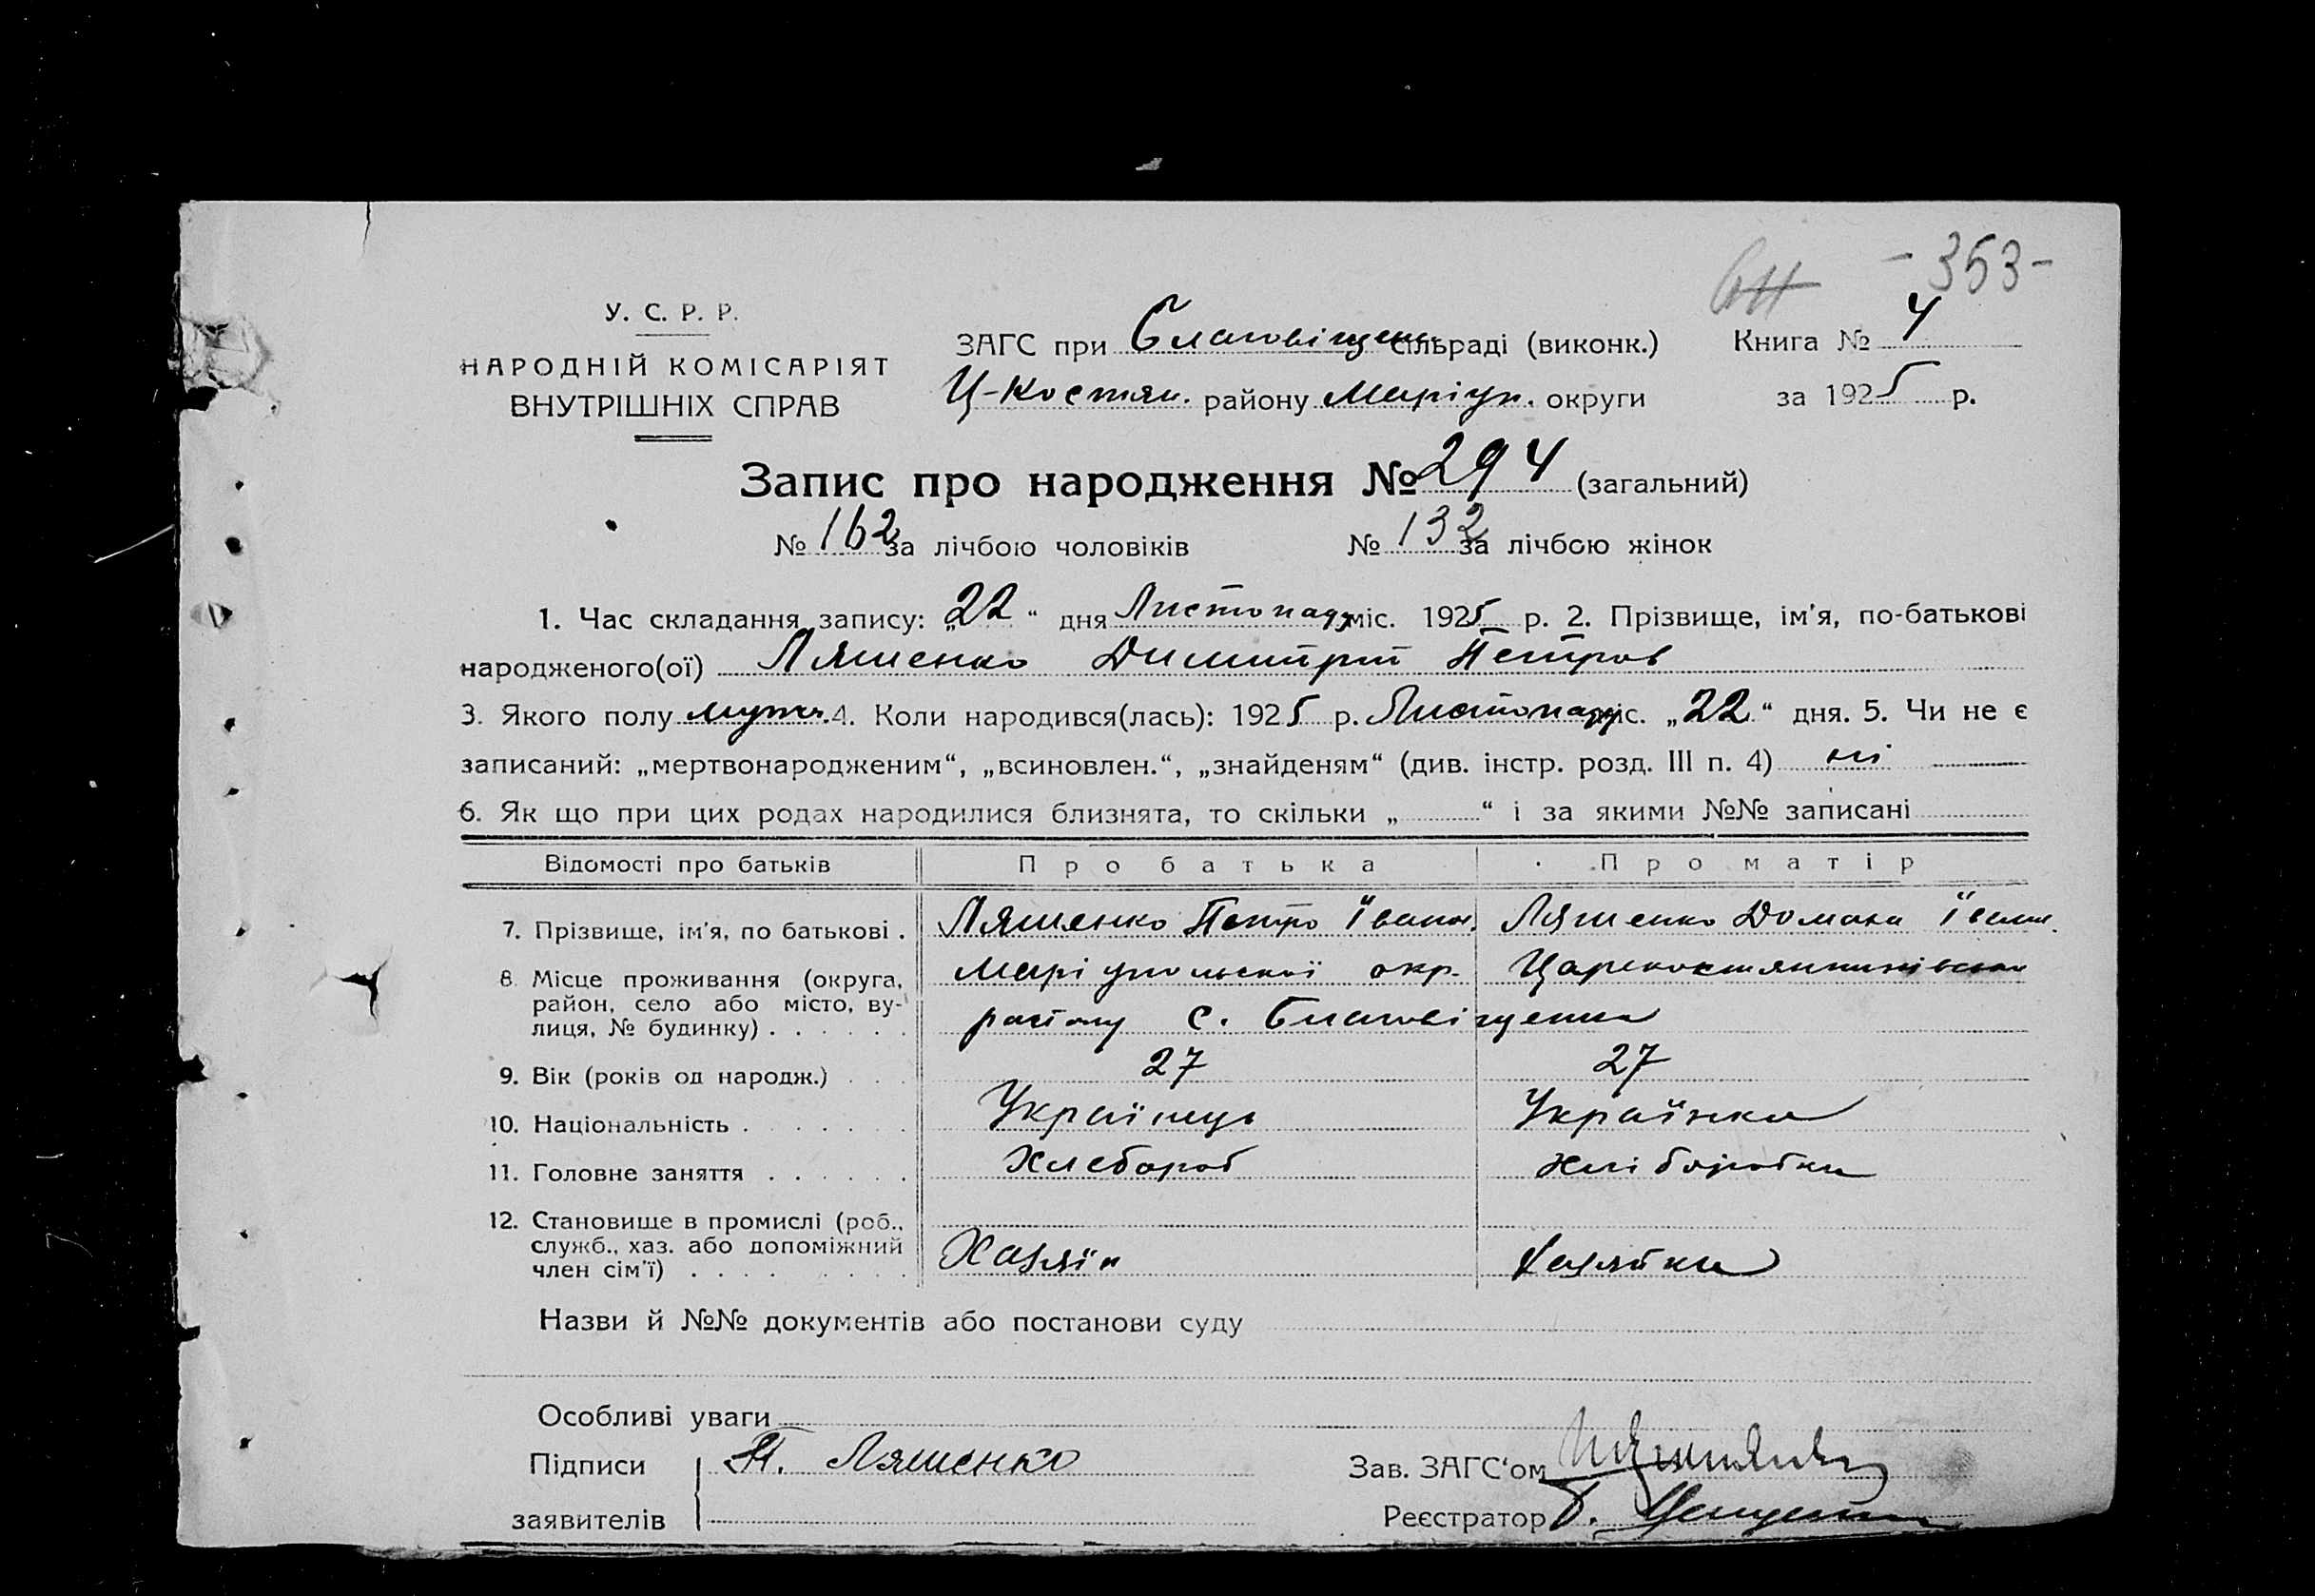 - 353 -
У. С. Р. Р.
НАРОДНІЙ КОМІСАРІЯТ
ВНУТРІШНІХ СПРАВ
ЗАГС при Благовіщен сільраді (виконк.) Книга № 4
Ц-Костян. району Маріуп. округи за 1925 р.
Запис про народження № 294 (загальний)
№ 162 за лічбою чоловіків № 132 за лічбою жінок
1. Час складання запису: „22“ дня Листопаду міс. 1925 р. 2. Прізвище, ім'я, по-батькові
народженого(ої) Ляшенко Димитрій Петров
3. Якого полу мужч. 4. Коли народився(лась): 1925 р. Листопаду міс. „22“ дня. 5. Чи не є
записаний: „мертвонародженим“, „всиновлен.“, „знайденям“ (див. інстр. розд. III п. 4) ні
6. Як що при цих родах народилися близнята, то скільки „ “ і за якими №№ записані
Відомості про батьків Про батька Про матір
7. Прізвище, ім'я, по батькові . Ляшенко Петро Їван. Ляшенко Домаха Їван.
8. Місце проживання (округа, район, село або місто, вулиця, № будинку) . . . . . . Маріупольської окр. Царекостянтинівськ
району с. Благовіщенка
9. Вік (років од народж.) . . . 27 27
10. Національність . . . . . . Українець Українка
11. Головне заняття . . . . . . Хлебороб хліборобка
12. Становище в промислі (роб., служб., хаз. або допоміжний член сім'ї) . . . . Хазяїн хазяйка
Назви й №№ документів або постанови суду
Особливі уваги
Підписи заявителів П. Ляшенко
Зав. ЗАГС'ом
Реєстратор